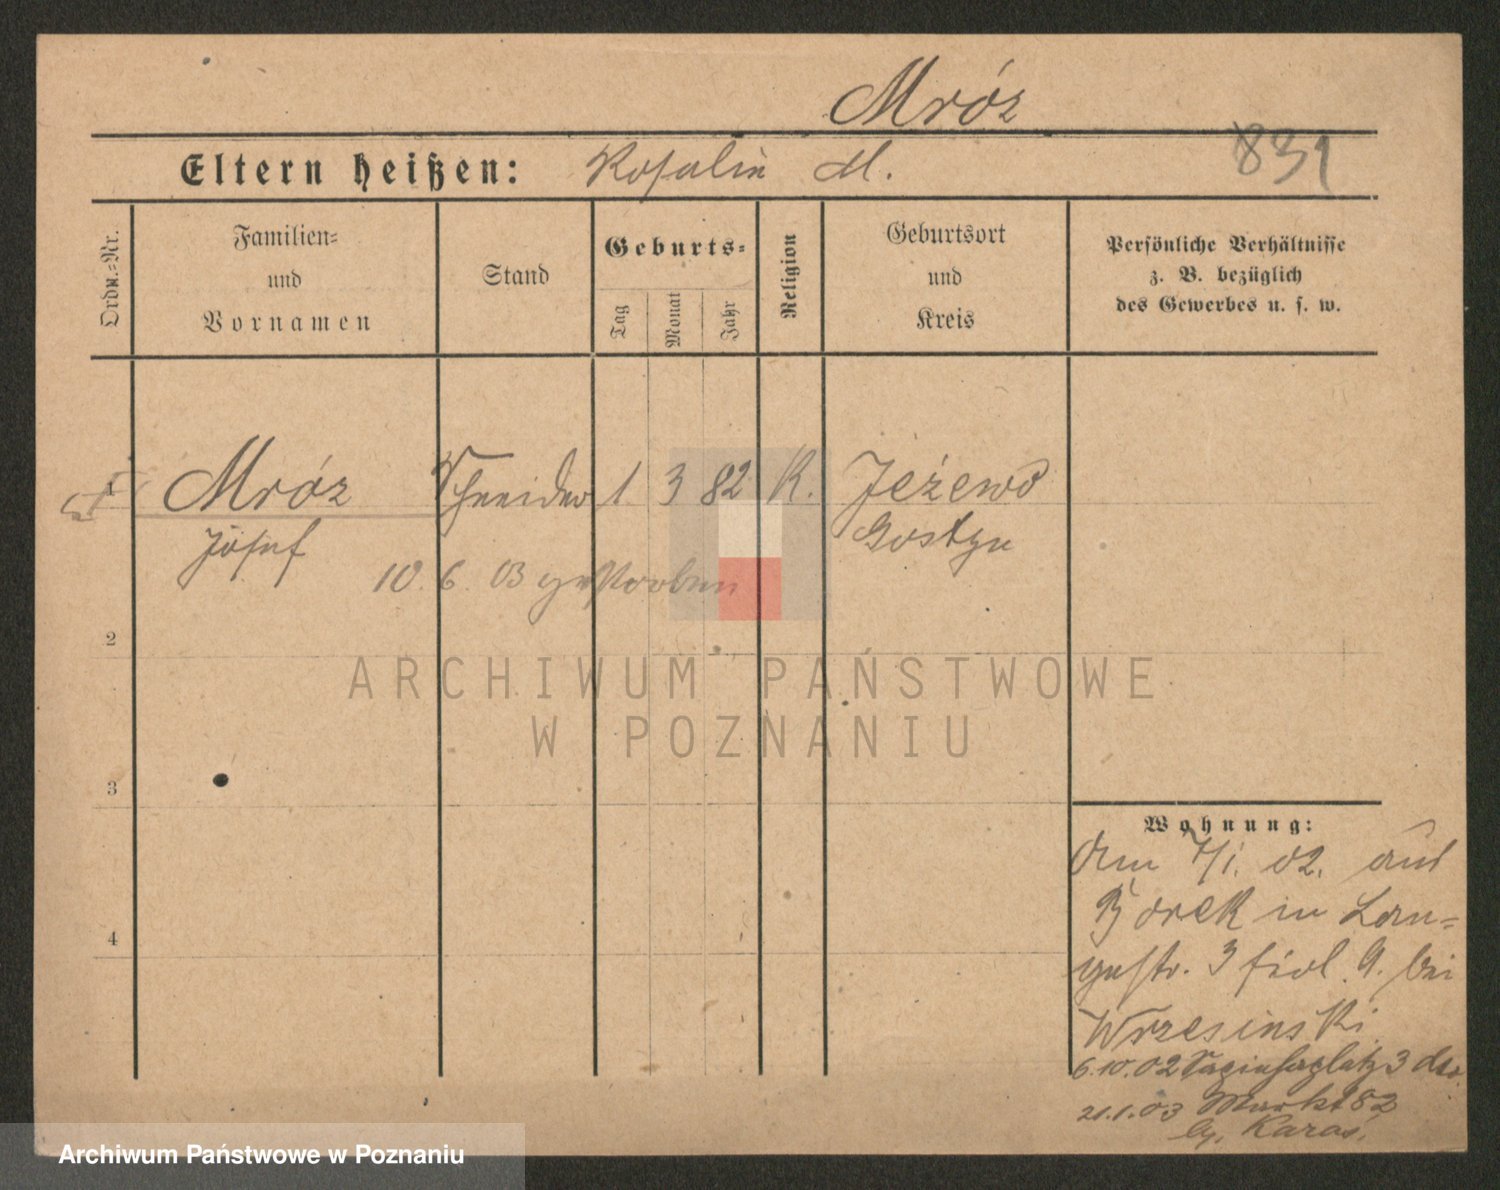 Mróz
831
Eltern heißen: Rosalie M.
Ordn.-Nr.
Familien-
und
Vornamen
Stand
Geburts-
Tag
Monat
Jahr
Religion
Geburtsort
und
Kreis
Persönliche Verhältnisse
z. B. bezüglich
des Gewerbes u. s. w.
1 Mróz Schneider 1 3 82 K. Jeżewo
Josef Gostyn
10. 6. 03 gestorben
2
ARCHIWUM PAŃSTWOWE
W POZNANIU
3
Wohnung:
Am 7/1. 02. aus
Borek in Lan-
gestr. 3 bei
Wrzesinski
6.10.02 3
21.1.03 Markt 82
Karas.
4
Archiwum Państwowe w Poznaniu